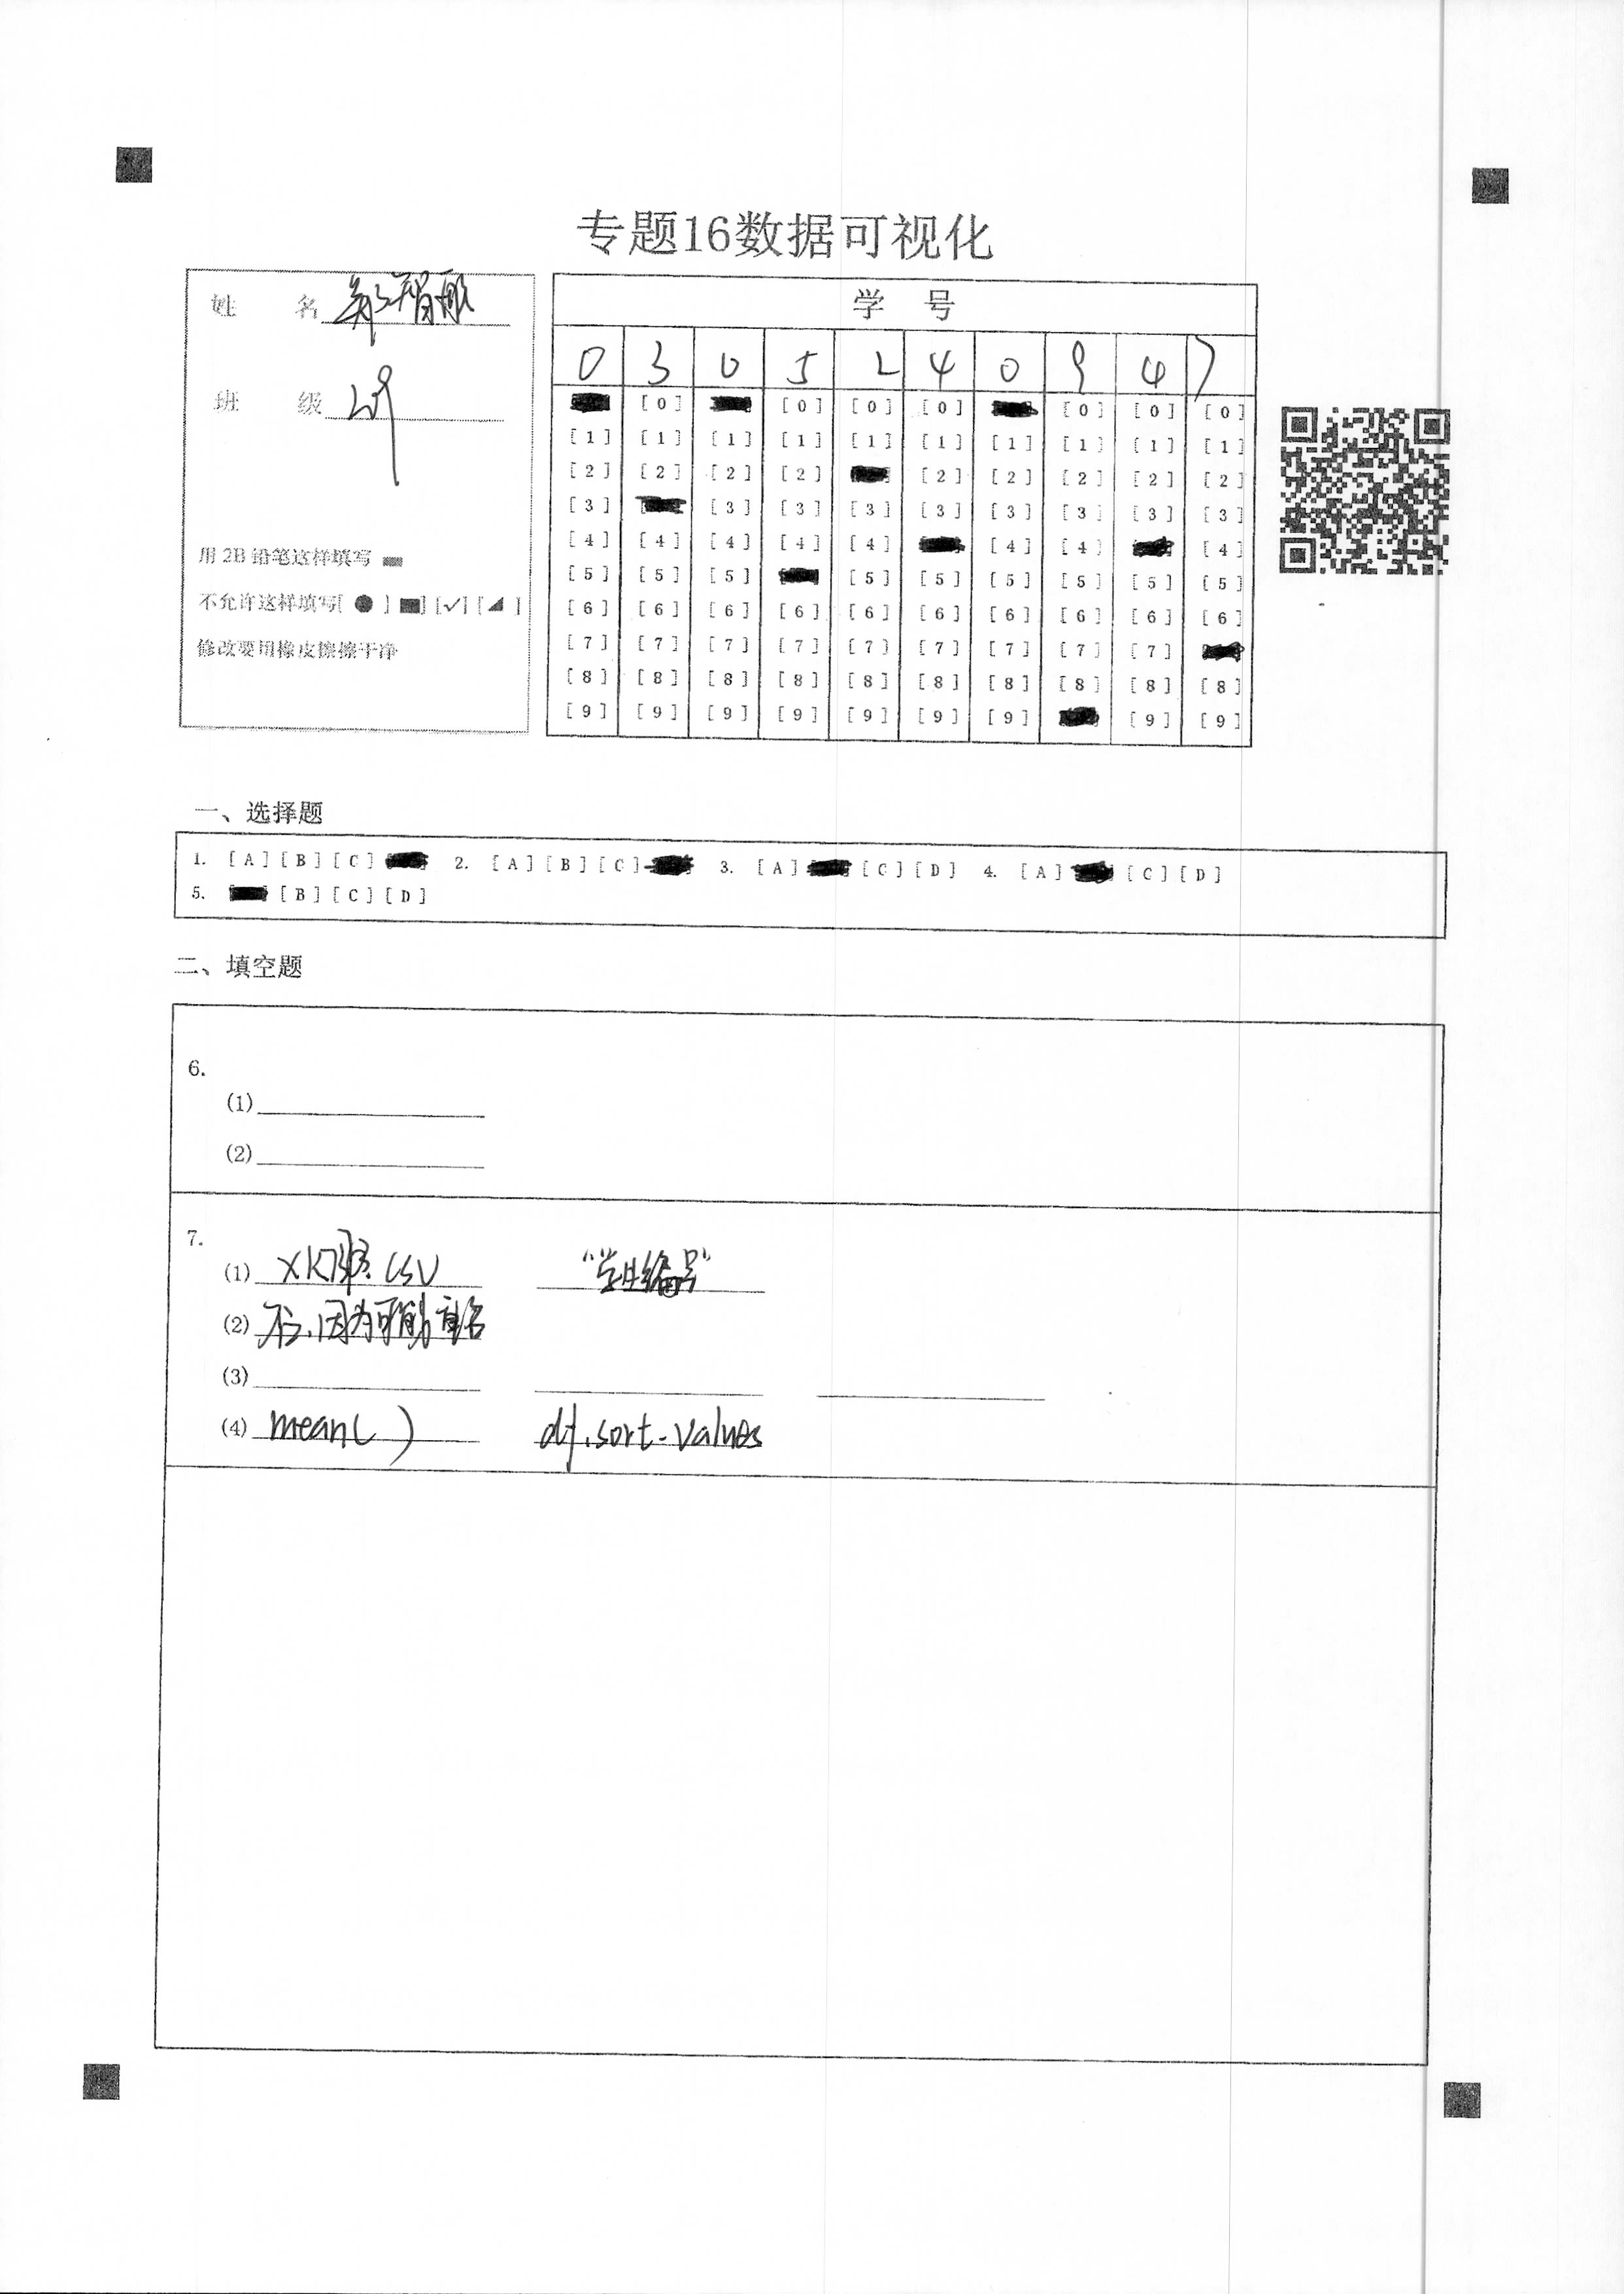 专题16数据可视化
姓 名
班 级
用 2B 铅笔这样填写
不允许这样填写[ ● ] [■] [✓] [◢]
修改要用橡皮擦擦干净
学 号
0 3 0 5 2 4 0 9 4 7
[0] [0] [0] [0] [0] [0] [0]
[1] [1] [1] [1] [1] [1] [1] [1] [1] [1]
[2] [2] [2] [2] [2] [2] [2] [2] [2]
[3] [3] [3] [3] [3] [3] [3] [3] [3]
[4] [4] [4] [4] [4] [4] [4] [4]
[5] [5] [5] [5] [5] [5] [5] [5] [5]
[6] [6] [6] [6] [6] [6] [6] [6] [6] [6]
[7] [7] [7] [7] [7] [7] [7] [7] [7]
[8] [8] [8] [8] [8] [8] [8] [8] [8] [8]
[9] [9] [9] [9] [9] [9] [9] [9] [9]
一、选择题
1. [A] [B] [C] 2. [A] [B] [C] 3. [A] [C] [D] 4. [A] [C] [D]
5. [B] [C] [D]
二、填空题
6.
(1)
(2)
7.
(1) .csv "学生编号"
(2) 不会,因为可能有重名
(3)
(4) mean( ) df.sort-values